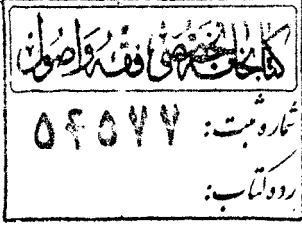 کتابخانه تخصصی فقه و اصول
شماره ثبت: ۵۴۵۷۷
رده کتاب: